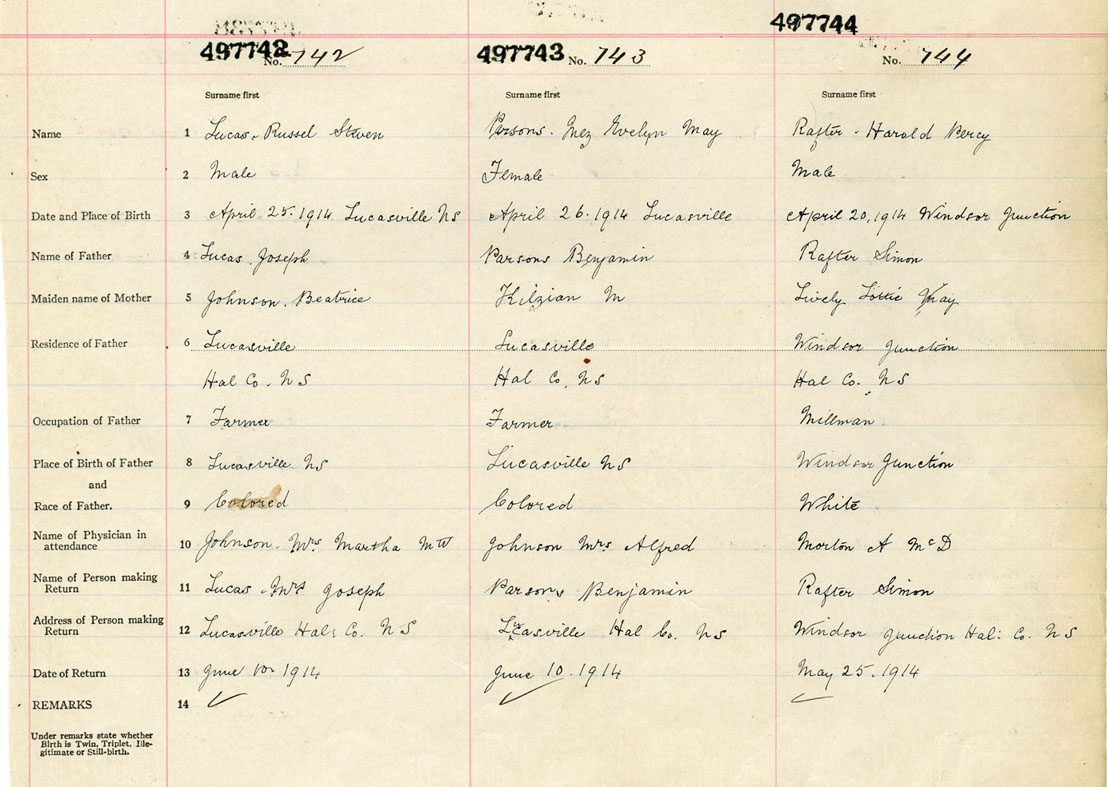 497742 No. 742 497743 No. 743 497744 No. 744
Surname first Surname first Surname first
Name 1 Lucas, Russel Steven Parsons. Inez Evelyn May Rafter - Harald Percy
Sex 2 Male Female Male
Date and Place of Birth 3 April 25. 1914 Lucasville NS April 26. 1914 Lucasville April 20, 1914 Windsor Junction
Name of Father 4 Lucas, Joseph Parsons Benjamin Rafter Simon
Maiden name of Mother 5 Johnson. Beatrice M Lively Lottie May
Residence of Father 6 Lucasville Lucasville Windsor Junction
Hal Co. NS Hal Co. NS Hal Co. NS
Occupation of Father 7 Farmer Farmer Millman
Place of Birth of Father 8 Lucasville NS Lucasville NS Windsor Junction
and
Race of Father. 9 Colored Colored White
Name of Physician in
attendance 10 Johnson. Mrs Martha Johnson Mrs Alfred Morton A McD
Name of Person making
Return 11 Lucas Mrs Joseph Parsons Benjamin Rafter Simon
Address of Person making
Return 12 Lucasville Hal: Co. NS Hal Co. NS Windsor Junction Hal: Co. NS
Date of Return 13 June 10 1914 June 10. 1914 May 25. 1914
REMARKS 14
Under remarks state whether
Birth is Twin, Triplet, Ille-
gitimate or Still-birth.